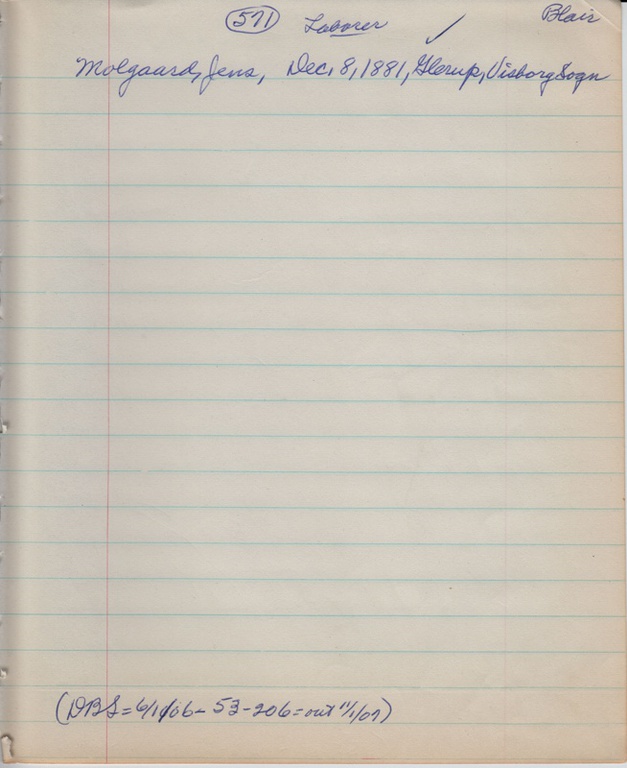 571 Laborer ✓ Blair
Molgaard, Jens, Dec. 8, 1881, Glerup, Visborg Sogn
(DBS=6/1/06-53-206=out 11/1/07)